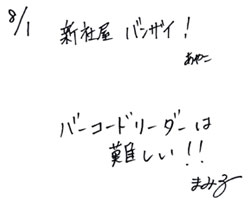 8/1
新社屋 バンザイ!
あやこ
バーコードリーダーは
難しい!!
まみ子